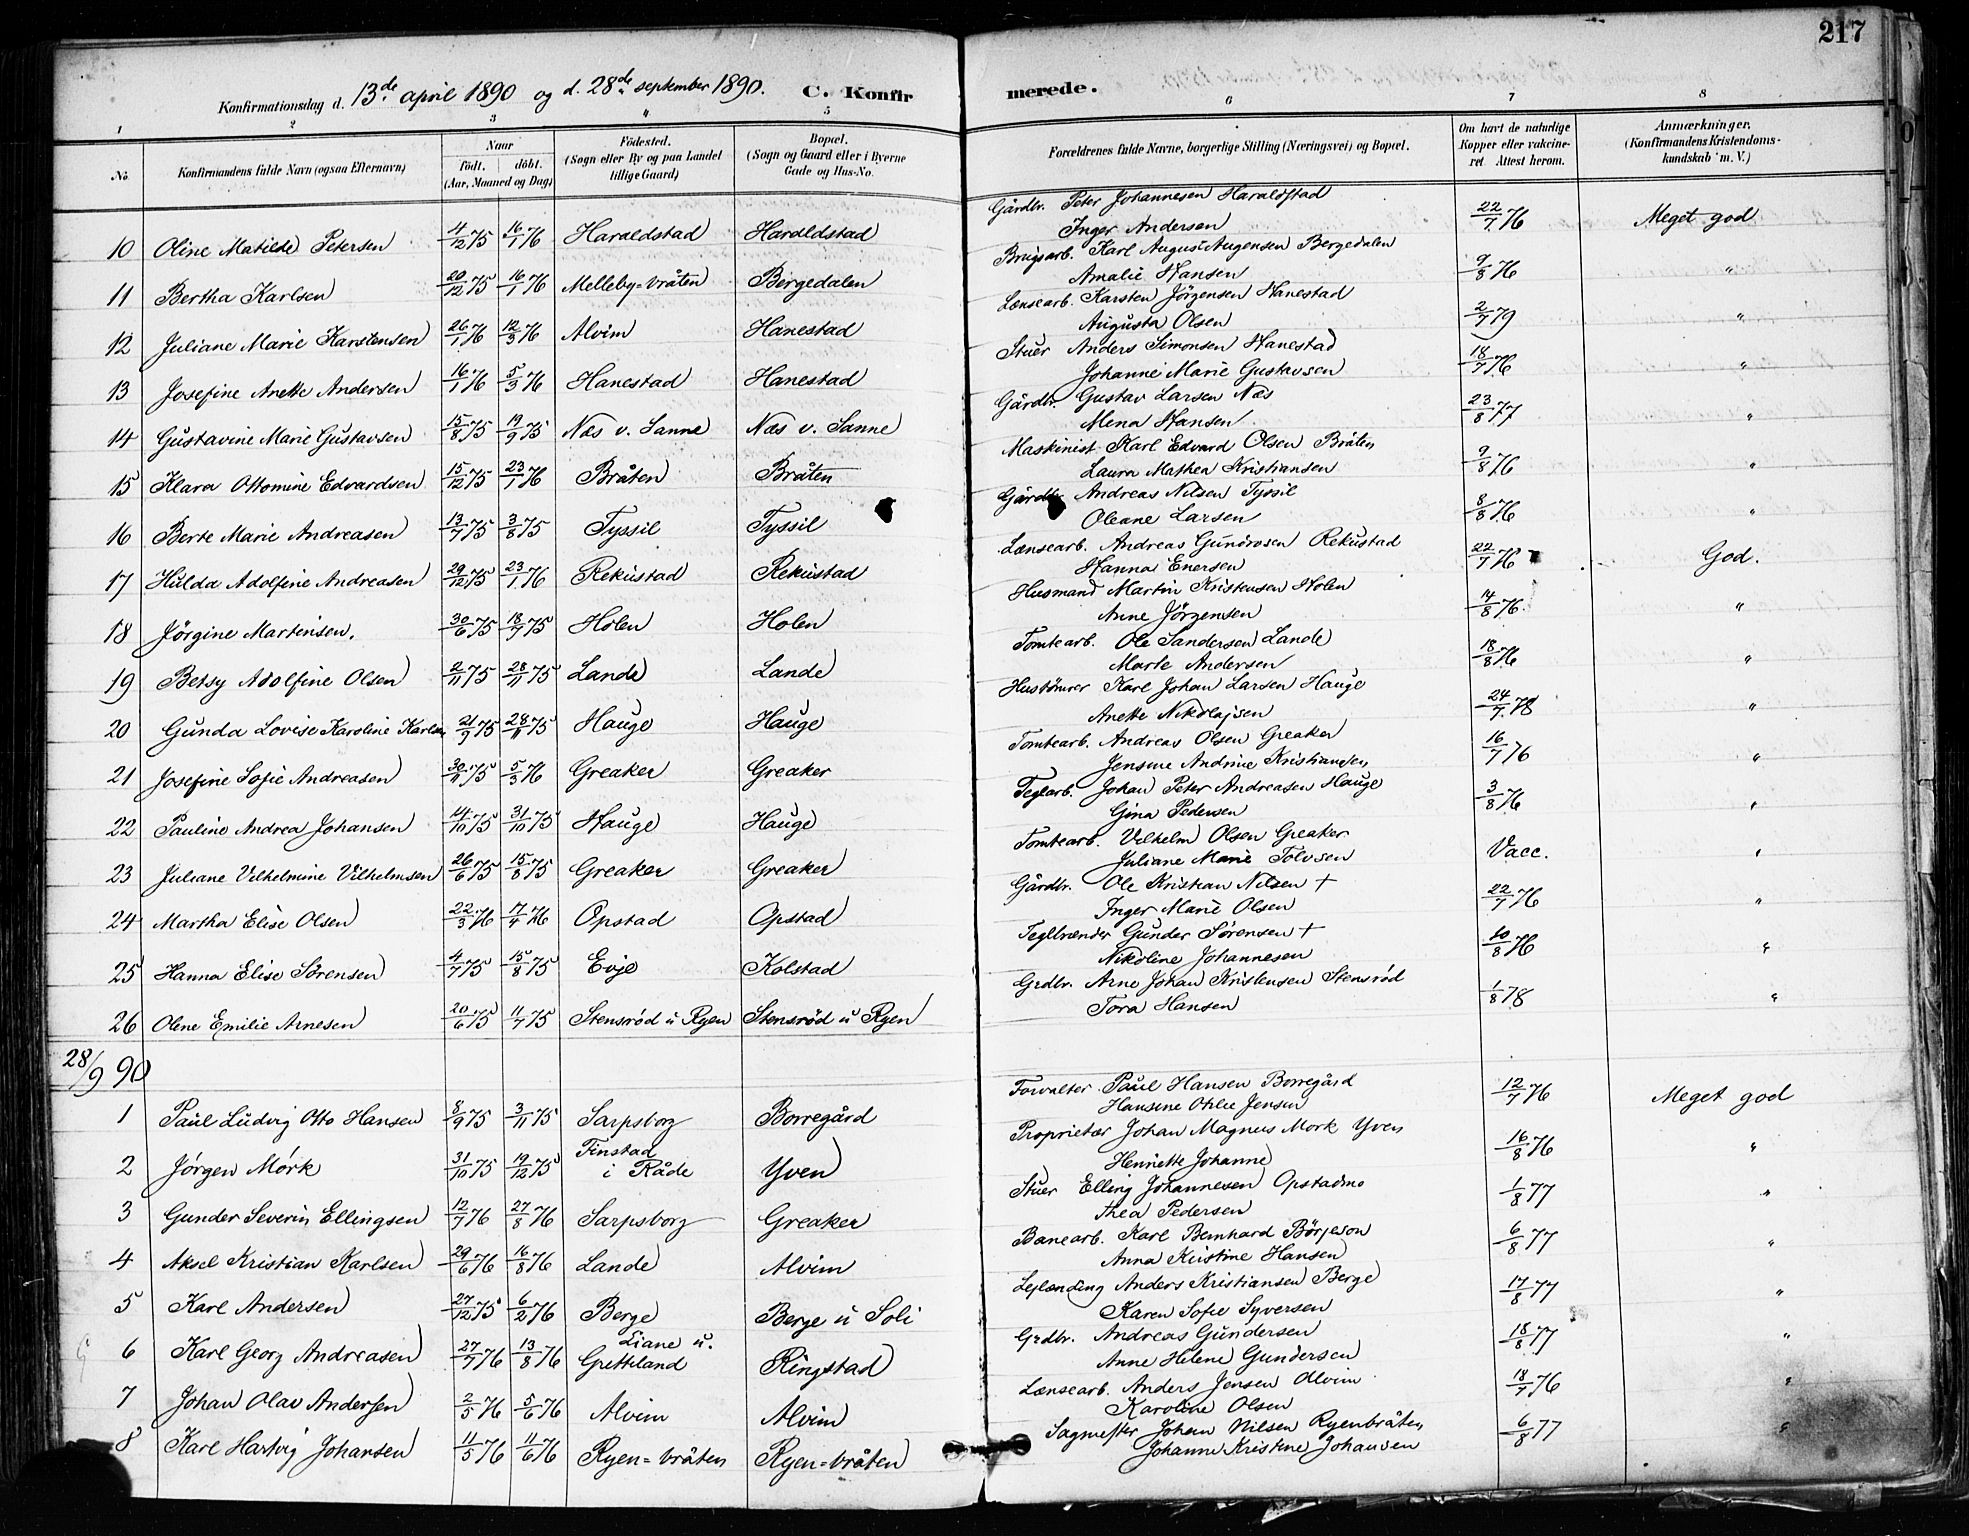 217
Konfirmationsdag d. 13de april 1890 og d. 28de september 1890. C. Konfirmerede.
1 2 3 4 5 6 7 8
No Konfirmandens fulde Navn (ogsaa Efternavn) Naar født. døbt. (Aar, Maaned og Dag) Fødested. (Sogn eller By og paa Landet tillige Gaard) Bopæl. (Sogn og Gaard eller i Byerne Gade og Hus-No. Forældrenes fulde Navne, borgerlige Stilling (Næringsvei) og Bopæl. Om havt de naturlige Kopper eller vakcineret Attest herom. Anmærkninger. (Konfirmandens Kristendomskundskab m. V.)
10 Oline Matilde Petersen 4/12 75 16/1 76 Haraldstad Haraldstad Gårdbr. Peter Johannesen Haraldstad 22/7 76 Meget god
Inger Andersen
11 Bertha Karlsen 20/12 75 16/1 76 Melleby=bråten Bergedalen Brugsarb. Karl August Augensen Bergedalen 9/8 76 "
Amalie Hansen
12 Juliane Marie Karstensen 26/1 76 12/3 76 Alvim Hanestad Lænsearb. Karsten Jörgensen Hanestad 2/7 79 "
Augusta Olsen
13 Josefine Anette Andersen 16/1 76 5/3 76 Hanestad Hanestad Stuer Anders Simonsen Hanestad 18/7 76 "
Johanne Marie Gustavsen
14 Gustavine Marie Gustavsen 15/8 75 19/9 75 Næs v. Sanne Næs v. Sanne Gårdbr. Gustav Larsen Næs 23/8 77 "
Mena Hansen
15 Klara Ottomine Edvardsen 15/12 75 23/1 76 Bråten Bråten Maskinist Karl Edvard Olsen Bråten 9/8 76 "
Laura Mathea Kristiansen
16 Berte Marie Andreasen 13/7 75 3/8 75 Tyssil Tyssil Gårdbr. Andreas Nilsen Tyssil 8/8 76 "
Oleane Larsen
17 Hulda Adolfine Andreasen 29/12 75 23/1 76 Rekustad Rekustad Lænsearb. Andreas Gundrosen Rekustad 22/7 76 God.
Hanna Enersen
18 Jörgine Martinsen. 30/6 75 18/7 75 Holen Holen Husmand Martin Kristensen Holen 14/8 76 "
Anne Jörgensen
19 Betsy Adolfine Olsen 2/11 75 28/11 75 Lande Lande Tomtearb. Ole Sandersen Lande 18/8 76 "
Marte Andersen
20 Gunda Lovise Karoline Karlsen 21/9 75 28/11 75 Hauge Hauge Hustömrer Karl Johan Larsen Hauge 24/7 78 "
Anette Nikolajsen
21 Josefine Sofie Andreasen 30/11 75 5/3 76 Greaker Greaker Tomtearb. Andreas Olsen Greaker 16/7 76 "
Jensine Andrine Kristiansen
22 Pauline Andrea Johansen 14/10 75 31/10 75 Hauge Hauge Teglarb. Johan Peter Andreasen Hauge 3/8 76 "
Gina Pedersen
23 Juliane Vilhelmine Vilhelmsen 26/6 75 15/8 75 Greaker Greaker Tomtearb. Vilhelm Olsen Greaker Vacc. "
Juliane Marie Tolvsen
24 Martha Elise Olsen 22/3 76 17/4 76 Opstad Opstad Gårdbr. Ole Kristian Nilsen † 22/7 76 "
Inger Marie Olsen
25 Hanna Elise Sörensen 4/7 75 15/8 75 Evje Kolstad Teglbrænder Gunder Sörensen † 10/8 76 "
Nikoline Johannesen
26 Olene Emilie Arnesen 20/6 75 11/7 75 Stensröd u Ryen Stensröd u Ryen Grdbr. Arne Johan Kristensen Stensröd 1/8 78 "
Tora Hansen
28/9 90
1 Paul Ludvig Otto Hansen 8/9 75 3/11 75 Sarpsborg Borregård Forvalter Paul Hansen Borregård 12/7 76 Meget god
Hansine Otilie Jensen
2 Jörgen Mörk 31/10 75 19/12 75 Finstad i Råde Yven Proprietær Johan Magnus Mork Yven 16/8 76 "
Henriette Johanne
3 Gunder Severin Ellingsen 12/7 76 27/8 76 Sarpsborg Greaker Stuer Elling Johannesen Opstadmo 1/8 77 "
Thea Pedersen
4 Aksel Kristian Karlsen 29/6 76 16/8 76 Lande Alvim Banearb. Karl Bernhard Börjeson 6/8 77 "
Anna Kristine Hansen
5 Karl Andersen 27/12 75 6/2 76 Berge Berge u Soli Leilænding Anders Kristiansen Berge 17/8 77 "
Karen Sofie Syversen
6 Karl Georg Andreasen 27/7 76 13/8 76 Liane u. Gretteland Ringstad Grdbr. Andreas Gundersen 18/8 77 "
Anne Helene Gundersen
7 Johan Olav Andersen 2/5 76 5/6 76 Alvim Alvim Lænsearb. Anders Jensen Alvim 18/7 76 "
Karoline Olsen
8 Karl Hartvig Johansen 11/5 76 11/6 76 Ryen=bråten Ryen=bråten Sagmester Johan Nilsen Ryenbråten 6/8 77 "
Johanne Kristine Johansen